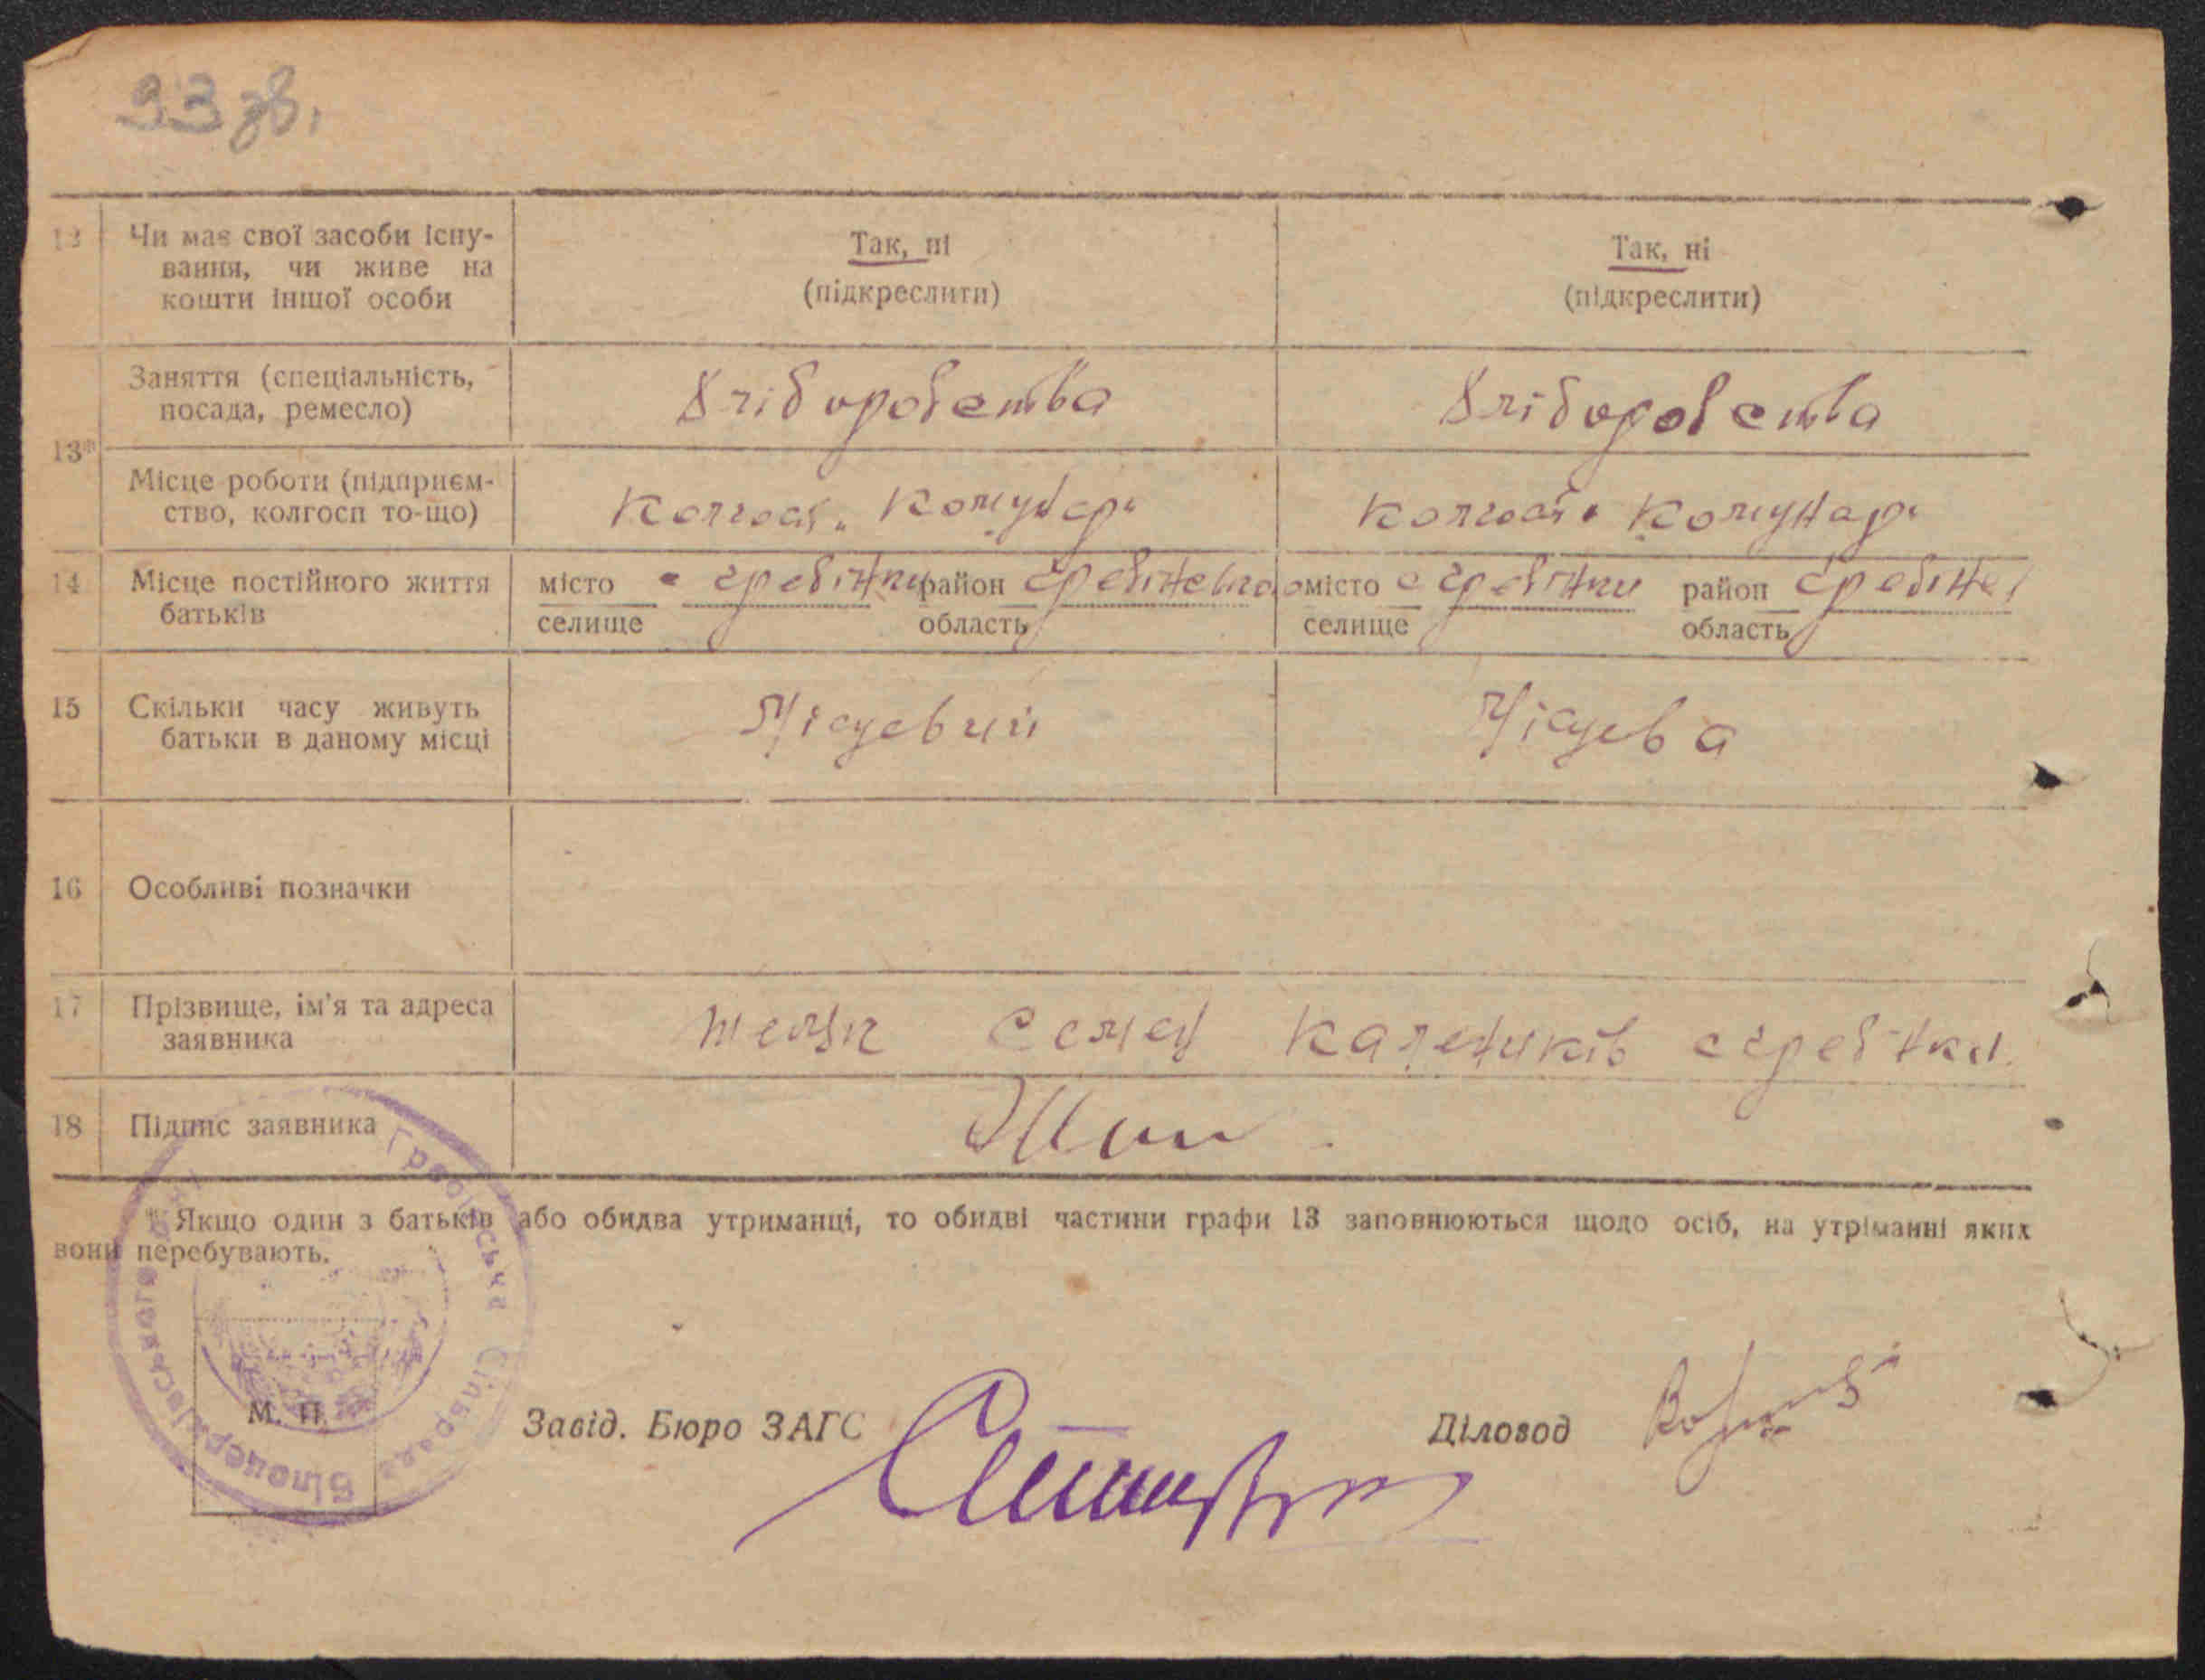 93 зв.
12 Чи має свої засоби існу-
вання, чи живе на
кошти іншої особи
Так, ні
(підкреслити)
Так, ні
(підкреслити)
13*
Заняття (спеціальність,
посада, ремесло)
Хліборобства
Хліборобства
Місце роботи (підприєм-
ство, колгосп то-що)
Колгосп „Комунар"
Колгосп „Комунар"
14 Місце постійного життя
батьків
місто с Гребінки район Гребінков
селище область
місто с Гребінки район Гребінк
селище область
15 Скільки часу живуть
батьки в даному місці
Місцевий
Місцева
16 Особливі позначки
17 Прізвище, ім'я та адреса
заявника
Семен Калеників с Гребінки
18 Підпис заявника
* Якщо один з батьків або обидва утриманці, то обидві частини графи 13 заповнюються щодо осіб, на утріманні яких
вони перебувають.
Гребінська Сільрада Білоцерківського
М. П.
Завід. Бюро ЗАГС
Діловод